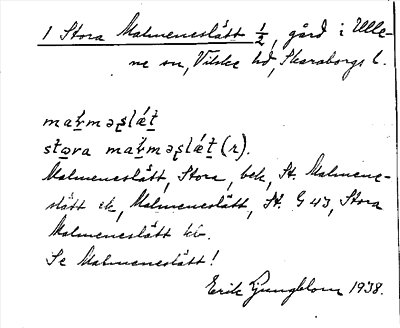 1 Stora Malmeneslätt 1/2, gård i Ulle-
ne sn, Vilske hd, Skaraborgs l.
stora
Malmeneslätt, Stora, bek, St. Malmene-
slätt ek, Malmeneslätt, St. G 43, Stora
Malmeneslätt
Se Malmeneslätt!
Erik Ljungblom 1938.